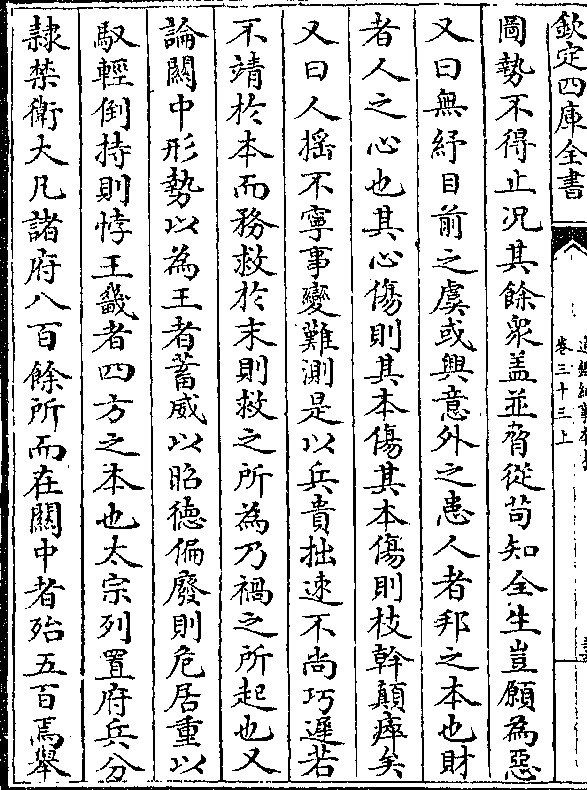 欽定四庫全書
卷三十三上
圖勢不得止况其餘衆盖並脅從苟知全生豈願為惡
又曰無紓目前之虞或興意外之患人者邦之本也財
者人之心也其心傷則其本傷其本傷則枝幹顛瘁矣
又曰人揺不寧事變難測是以兵貴拙速不尚巧遲若
不靖於本而務救於末則救之所為乃禍之所起也又
論關中形勢以為王者蓄威以昭德偏廢則危居重以
馭輕倒持則悖王畿者四方之本也太宗列置府兵分
隷禁衛大凡諸府八百餘所而在關中者殆五百焉舉